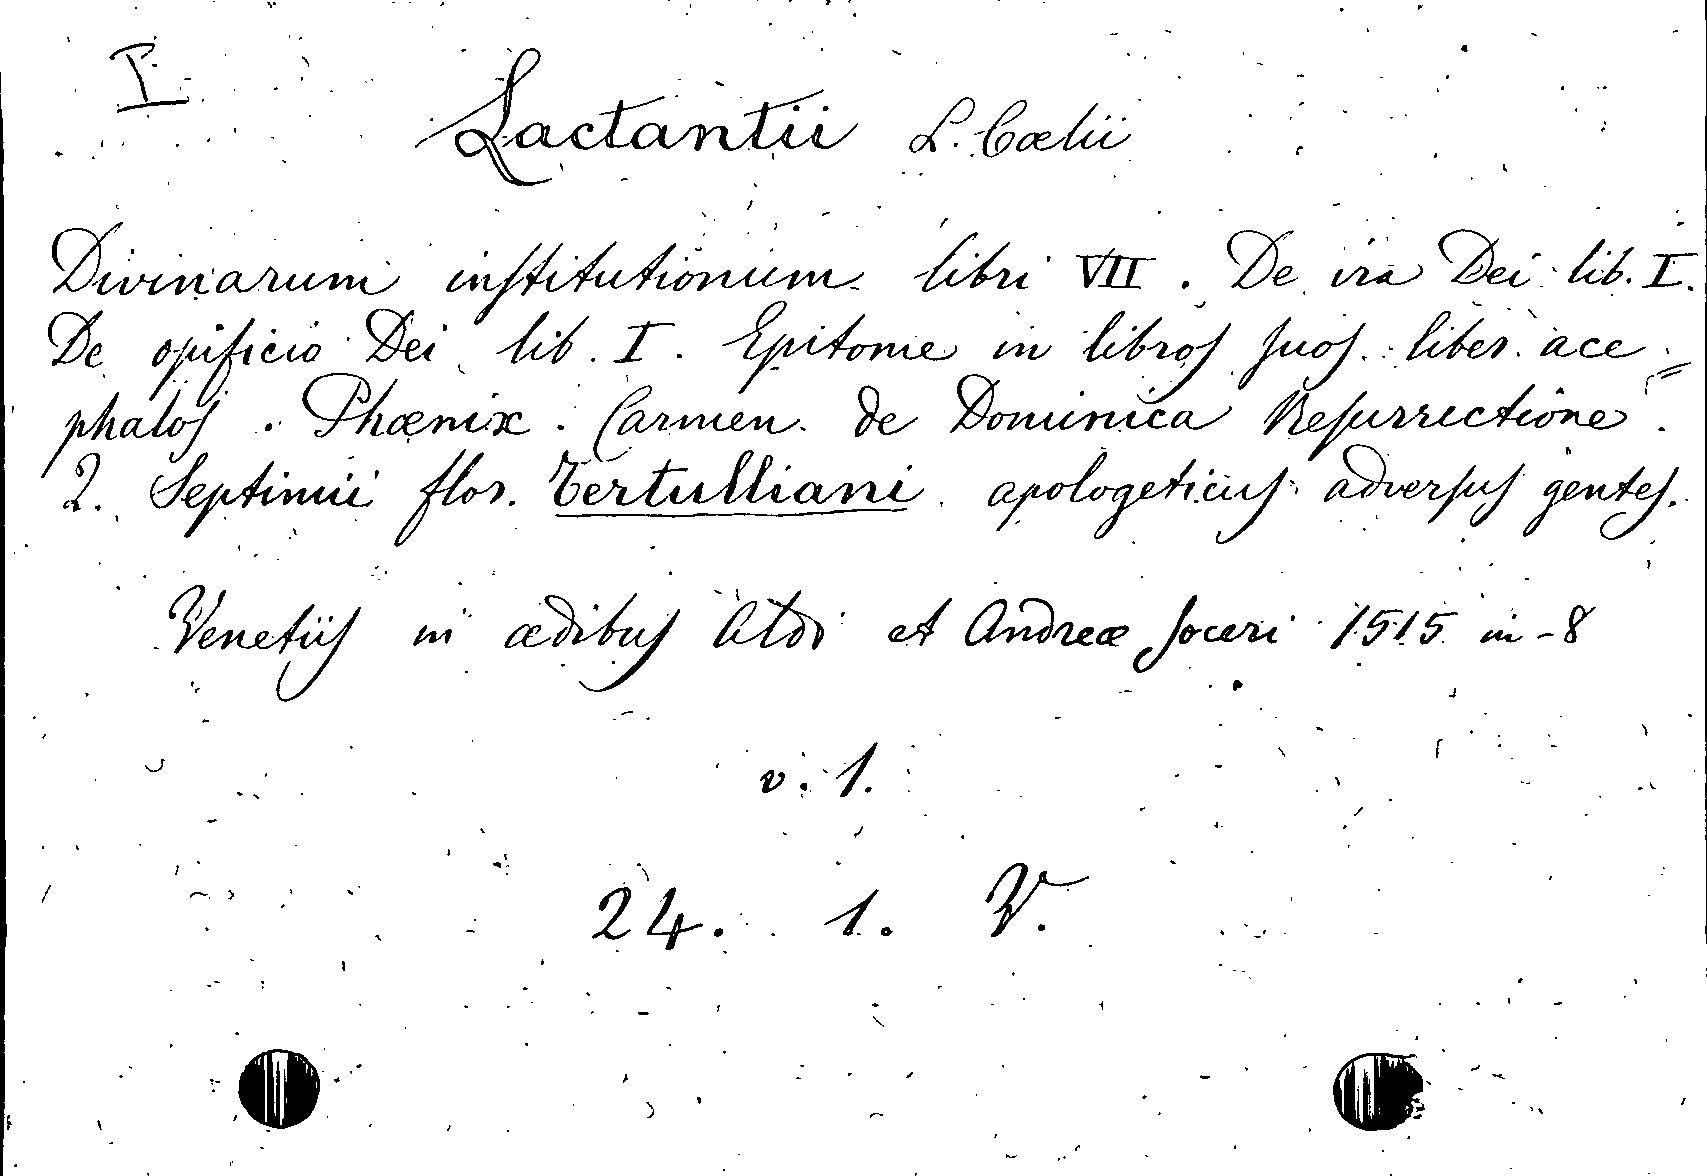 I
Lactantii L. Cœlii
Divinarum institutionum libri VII. De ira Dei lib. I.
De opificio Dei lib. I. Epitome in libros suos. liber ace=
phalos. Phœnix. Carmen de Dominica Resurrectione.
2. Septimii flor. Tertulliani apologeticus adversus gentes.
Venetiis in ædibus Aldi et Andreæ soceri 1515 in-8
v. 1.
24. 1. V.